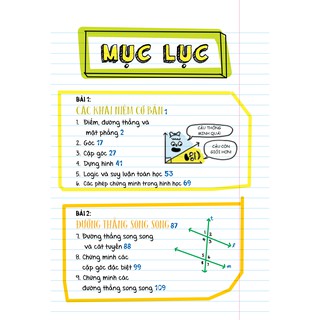 MỤC LỤC
BÀI 1:
CÁC KHÁI NIỆM CƠ BẢN 1
1. Điểm, đường thẳng và
mặt phẳng 2
2. Góc 17
3. Cặp góc 27
4. Dựng hình 41
5. Logic và suy luận toán học 53
6. Các phép chứng minh trong hình học 69
CẬU THÔNG
MINH QUÁ!
CẬU CÒN
GIỎI HƠN!
BÀI 2:
ĐƯỜNG THẲNG SONG SONG 87
7. Đường thẳng song song
và cát tuyến 88
8. Chứng minh các
cặp góc đặc biệt 99
9. Chứng minh các
đường thẳng song song 109